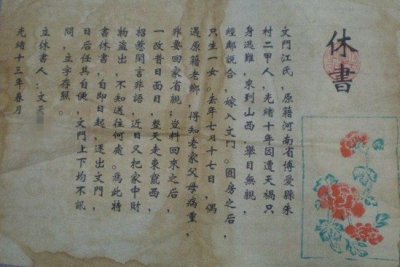 休書
文門江氏，原籍河南省博愛縣朱
村二甲人，光緒十年因遭天禍只
身逃難，東到山西，舉目無親，
經邮說合，嫁入文門。圓房之后，
只生一女，去年七月十七日，偶
遇原籍老鄉，得知老家父母病重，
非要回家省親；豈料回來之后，
一改昔日面目，整天走東竄西，
招惹閒言非語，近日又把家中財
物盜出，不知送往何處。為此特
書休書，自即日起，逐出文門，
日后任其自便，文門上下均不訊
問，立字存照。
立休書人：文
光緒十三年春月